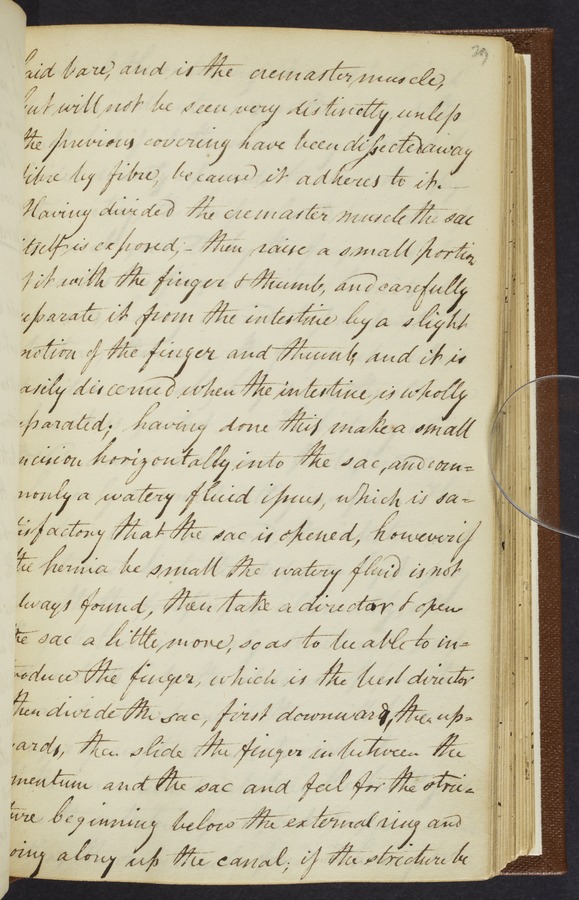 29
laid bare, and is the cremaster muscle,
but will not be seen very distinctly unless
the previous covering have been dissected away
fibre by fibre, because it adheres to it. —
Having divided the cremaster muscle the sac
itself is exposed; – then raise a small portion
of it with the finger & thumb, and carefully
separate it from the intestine by a slight
motion of the finger and thumb, and it is
easily discerned when the intestine is wholly
separated; having done this make a small
incision horizontally into the sac, and com=
monly a watery fluid issues, which is sa=
tisfactory that the sac is opened, however if
the hernia be small the watery fluid is not
always found, then take a director & open
the sac a little, more, so as to be able to in=
troduce the finger, which is the best director
then divide the sac, first downward, then up=
wards, then slide the finger in between the
omentum and the sac and feel for the stric=
ture beginning below the external ring and
going along up the canal; if the stricture be